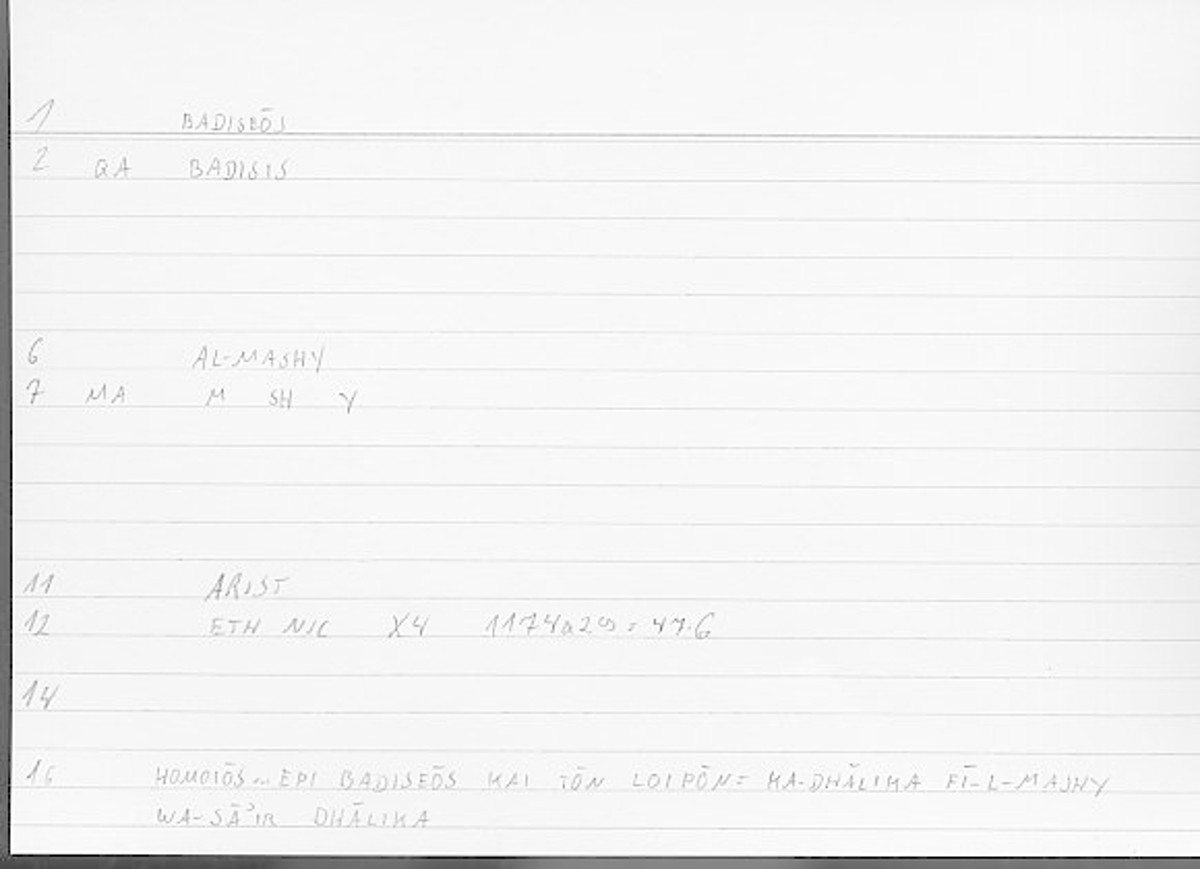 1 BADISEŌS
2 QA BADISIS
6 AL-MASHY
7 MA M SH Y
11 ARIST
12 ETH NIC X4 1174a29 = 47.6
14
16 HOMOIŌS... EPI BADISEŌS KAI TŌN LOIPŌN = KA-DHĀLIKA FĪ-L-MASHY
WA-SĀʾIR DHĀLIKA